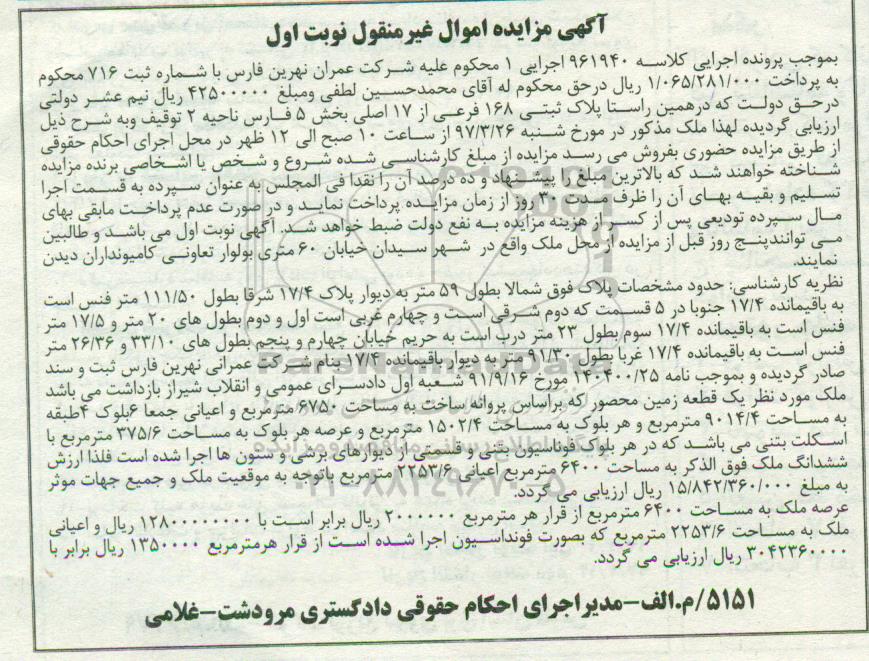 آگهی مزایده اموال غیرمنقول نوبت اول
بموجب پرونده اجرایی کلاسه ۹۶۱۹۴۰ اجرایی ۱ محکوم علیه شرکت عمران نهرین فارس با شماره ثبت ۷۱۶ محکوم
به پرداخت ۱/۰۶۵/۲۸۱/۰۰۰ ریال درحق محکوم له آقای محمدحسین لطفی ومبلغ ۴۲۵۰۰۰۰۰ ریال نیم عشر دولتی
درحق دولت که درهمین راستا پلاک ثبتی ۱۶۸ فرعی از ۱۷ اصلی بخش ۵ فارس ناحیه ۲ توقیف وبه شرح ذیل
ارزیابی گردیده لهذا ملک مذکور در مورخ شنبه ۹۷/۳/۲۶ از ساعت ۱۰ صبح الی ۱۲ ظهر در محل اجرای احکام حقوقی
از طریق مزایده حضوری بفروش می رسد مزایده از مبلغ کارشناسی شده شروع و شخص یا اشخاصی برنده مزایده
شناخته خواهند شد که بالاترین مبلغ را پیشنهاد و ده درصد آن را نقدا فی المجلس به عنوان سپرده به قسمت اجرا
تسلیم و بقیه بهای آن را ظرف مدت ۳۰ روز از زمان مزایده پرداخت نماید و در صورت عدم پرداخت مابقی بهای
مال سپرده تودیعی پس از کسر از هزینه مزایده به نفع دولت ضبط خواهد شد. آگهی نوبت اول می باشد و طالبین
می توانندپنج روز قبل از مزایده از محل ملک واقع در شهر سیدان خیابان ۶۰ متری بولوار تعاونی کامیونداران دیدن
نمایند.
نظریه کارشناسی: حدود مشخصات پلاک فوق شمالا بطول ۵۹ متر به دیوار پلاک ۱۷/۴ شرقا بطول ۱۱۱/۵۰ متر فنس است
به باقیمانده ۱۷/۴ جنوبا در ۵ قسمت که دوم شرقی است و چهارم غربی است اول و دوم بطول های ۲۰ متر و ۱۷/۵ متر
فنس است به باقیمانده ۱۷/۴ سوم بطول ۲۳ متر درب است به حریم خیابان چهارم و پنجم بطول های ۳۳/۱۰ و ۲۶/۳۶ متر
فنس است به باقیمانده ۱۷/۴ غربا بطول ۹۱/۳۰ متر به دیوار باقیمانده ۱۷/۴ بنام شرکت عمرانی نهرین فارس ثبت و سند
صادر گردیده و بموجب نامه ۱۴۰۴۰۰/۲۵ مورخ ۹۱/۹/۱۶ شعبه اول دادسرای عمومی و انقلاب شیراز بازداشت می باشد
ملک مورد نظر یک قطعه زمین محصور که براساس پروانه ساخت به مساحت ۶۷۵۰ مترمربع و اعیانی جمعا ۶بلوک ۴طبقه
به مساحت ۹۰۱۴/۴ مترمربع و هر بلوک به مساحت ۱۵۰۲/۴ مترمربع و عرصه هر بلوک به مساحت ۳۷۵/۶ مترمربع با
اسکلت بتنی می باشد که در هر بلوک فونداسیون بتنی و قسمتی از دیوارهای برشی و ستون ها اجرا شده است فلذا ارزش
ششدانگ ملک فوق الذکر به مساحت ۶۴۰۰ مترمربع اعیانی ۲۲۵۳/۶ مترمربع باتوجه به موقعیت ملک و جمیع جهات موثر
به مبلغ ۱۵/۸۴۲/۳۶۰/۰۰۰ ریال ارزیابی می گردد.
عرصه ملک به مساحت ۶۴۰۰ مترمربع از قرار هر مترمربع ۲۰۰۰۰۰۰ ریال برابر است با ۱۲۸۰۰۰۰۰۰۰۰ ریال و اعیانی
ملک به مساحت ۲۲۵۳/۶ مترمربع که بصورت فونداسیون اجرا شده است از قرار هرمترمربع ۱۳۵۰۰۰۰ ریال برابر با
۳۰۴۲۳۶۰۰۰۰ ریال ارزیابی می گردد.
۵۱۵۱/م.الف-مدیراجرای احکام حقوقی دادگستری مرودشت-غلامی
ParsNamadData
پایگاه اطلاع رسانی مناقصه و مزایده
۰۲۱-۸۸۳۴۹۶۷۰-۵